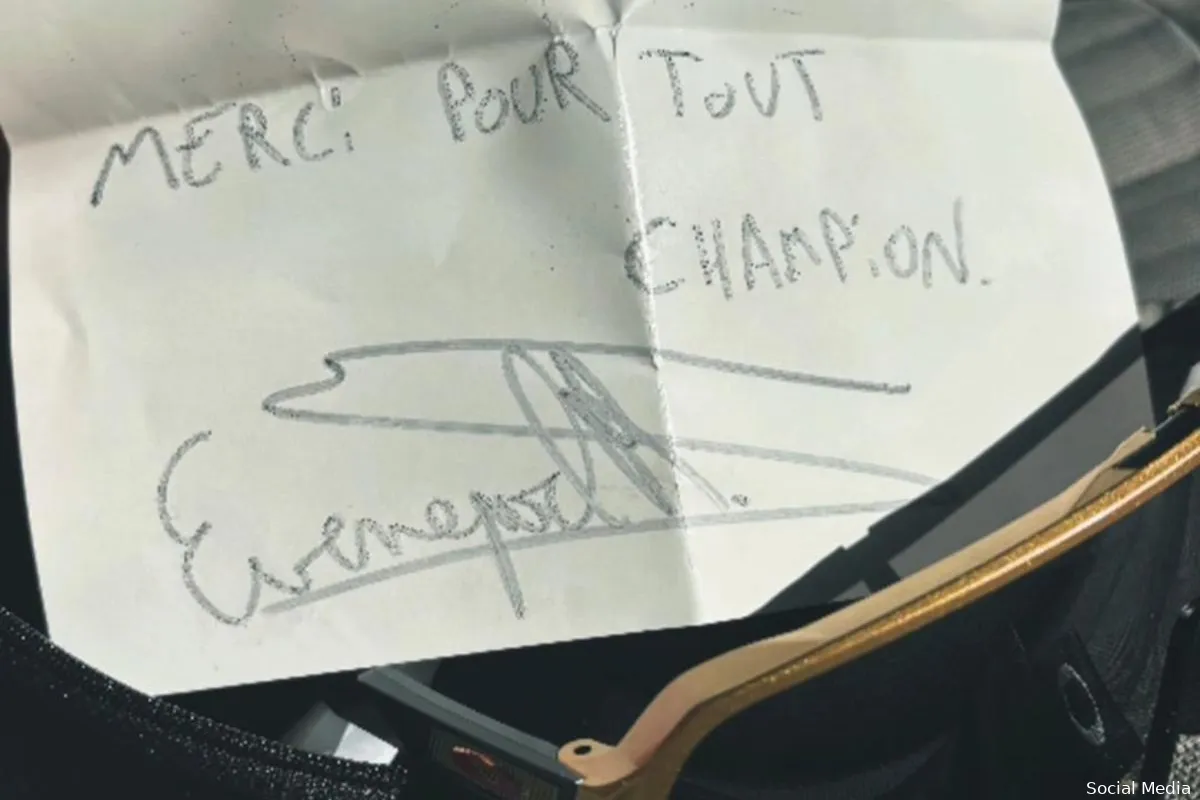 MERCi POUR TOUT
CHAMPiON.
Evenepoel
Social Media